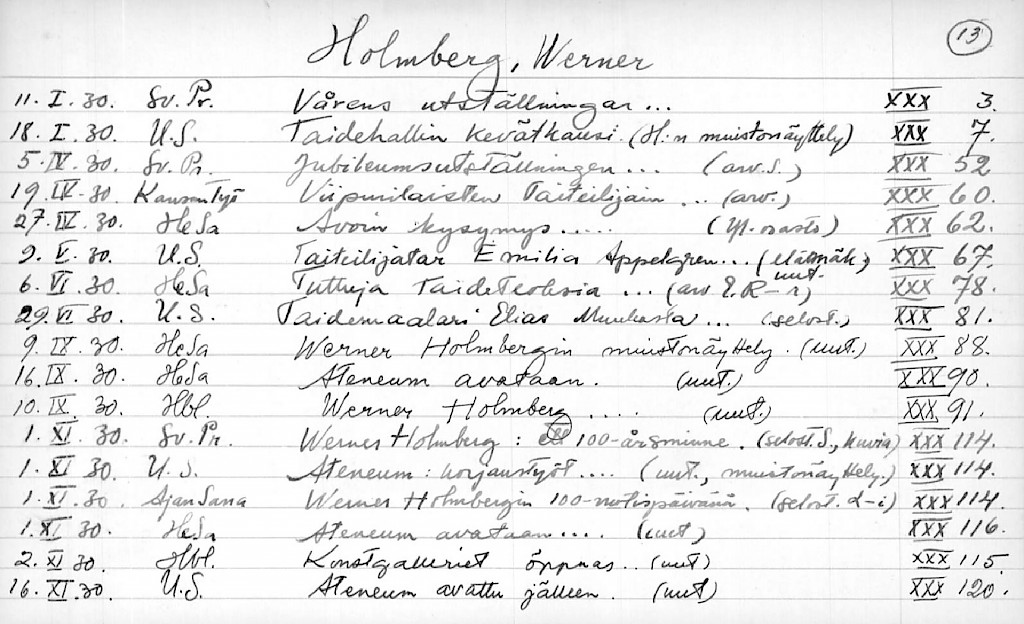 13
Holmberg, Werner
11. I. 30. Sv. Pr. Vårens utställningar... XXX 3.
18. I. 30. U.S. Taidehallin kevätkausi. (H:n muistonäyttely) XXX 7.
5. IV. 30. Sv. Pr. Jubileumsutställningen... (arv. S.) XXX 52
19. IV. 30 Kansan Työ Viipurilaisten Taiteilijain... (arv.) XXX 60.
27. IV. 30. HeSa Avoin kysymys..... (Yl. osasto) XXX 62.
9. V. 30. U.S. Taiteilijatar Emilia Appelgren... (elämäk; uut. XXX 67.
6. VI. 30. HeSa Tuttuja Taideteoksia... (arv E. R-n) XXX 78.
29. VI 30. U.S. Taidemaalari Elias Muukasta... (selost.) XXX 81.
9. IX. 30. HeSa Werner Holmbergin muistonäyttely. (uut.) XXX 88.
16. IX. 30. HeSa Ateneum avataan. (uut.) XXX 90.
10. IX. 30. Hbl. Werner Holmberg.... (uut.) XXX 91.
1. XI. 30. Sv. Pr. Werner Holmberg: 100-årsminne. (selost. S., kuvia) XXX 114.
1. XI 30. U.S. Ateneum: korjaustyöt.... (uut., muistonäyttely.) XXX 114.
1. XI. 30. Ajan Sana Werner Holmbergin 100-vuotispäivänä. (selost. d-i) XXX 114.
1. XI 30. HeSa Ateneum avataan.... (uut) XXX 116.
2. XI 30. Hbl. Konstgalleriet öppnas.. (uut) XXX 115.
16. XI. 30. U.S. Ateneum avattu jälleen. (uut) XXX 120.